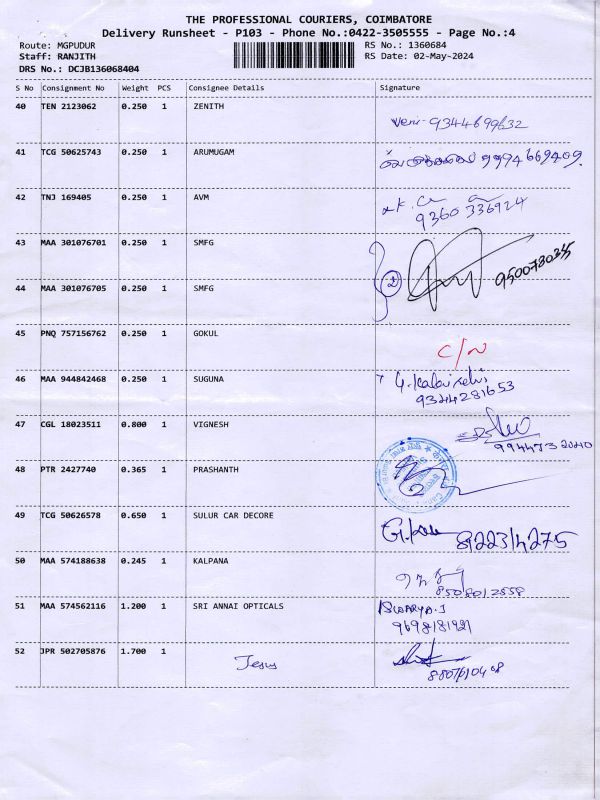 THE PROFESSIONAL COURIERS, COIMBATORE
Delivery Runsheet - P103 - Phone No.:0422-3505555 - Page No.:4
Route: MGPUDUR RS No.: 1360684
Staff: RANJITH RS Date: 02-May-2024
DRS No.: DCJB136068404
S No Consignment No Weight PCS Consignee Details Signature
40 TEN 2123062 0.250 1 ZENITH
9344699632
41 TCG 50625743 0.250 1 ARUMUGAM
9994669409.
42 TNJ 169405 0.250 1 AVM
9360 336924
43 MAA 301076701 0.250 1 SMFG
2 9500780335
44 MAA 301076705 0.250 1 SMFG
45 PNQ 757156762 0.250 1 GOKUL
C/N
46 MAA 944842468 0.250 1 SUGUNA
9344281653
47 CGL 18023511 0.800 1 VIGNESH
48 PTR 2427740 0.365 1 PRASHANTH
49 TCG 50626578 0.650 1 SULUR CAR DECORE
822314275
50 MAA 574188638 0.245 1 KALPANA
51 MAA 574562116 1.200 1 SRI ANNAI OPTICALS
9698181921
52 JPR 502705876 1.700 1
Jesus